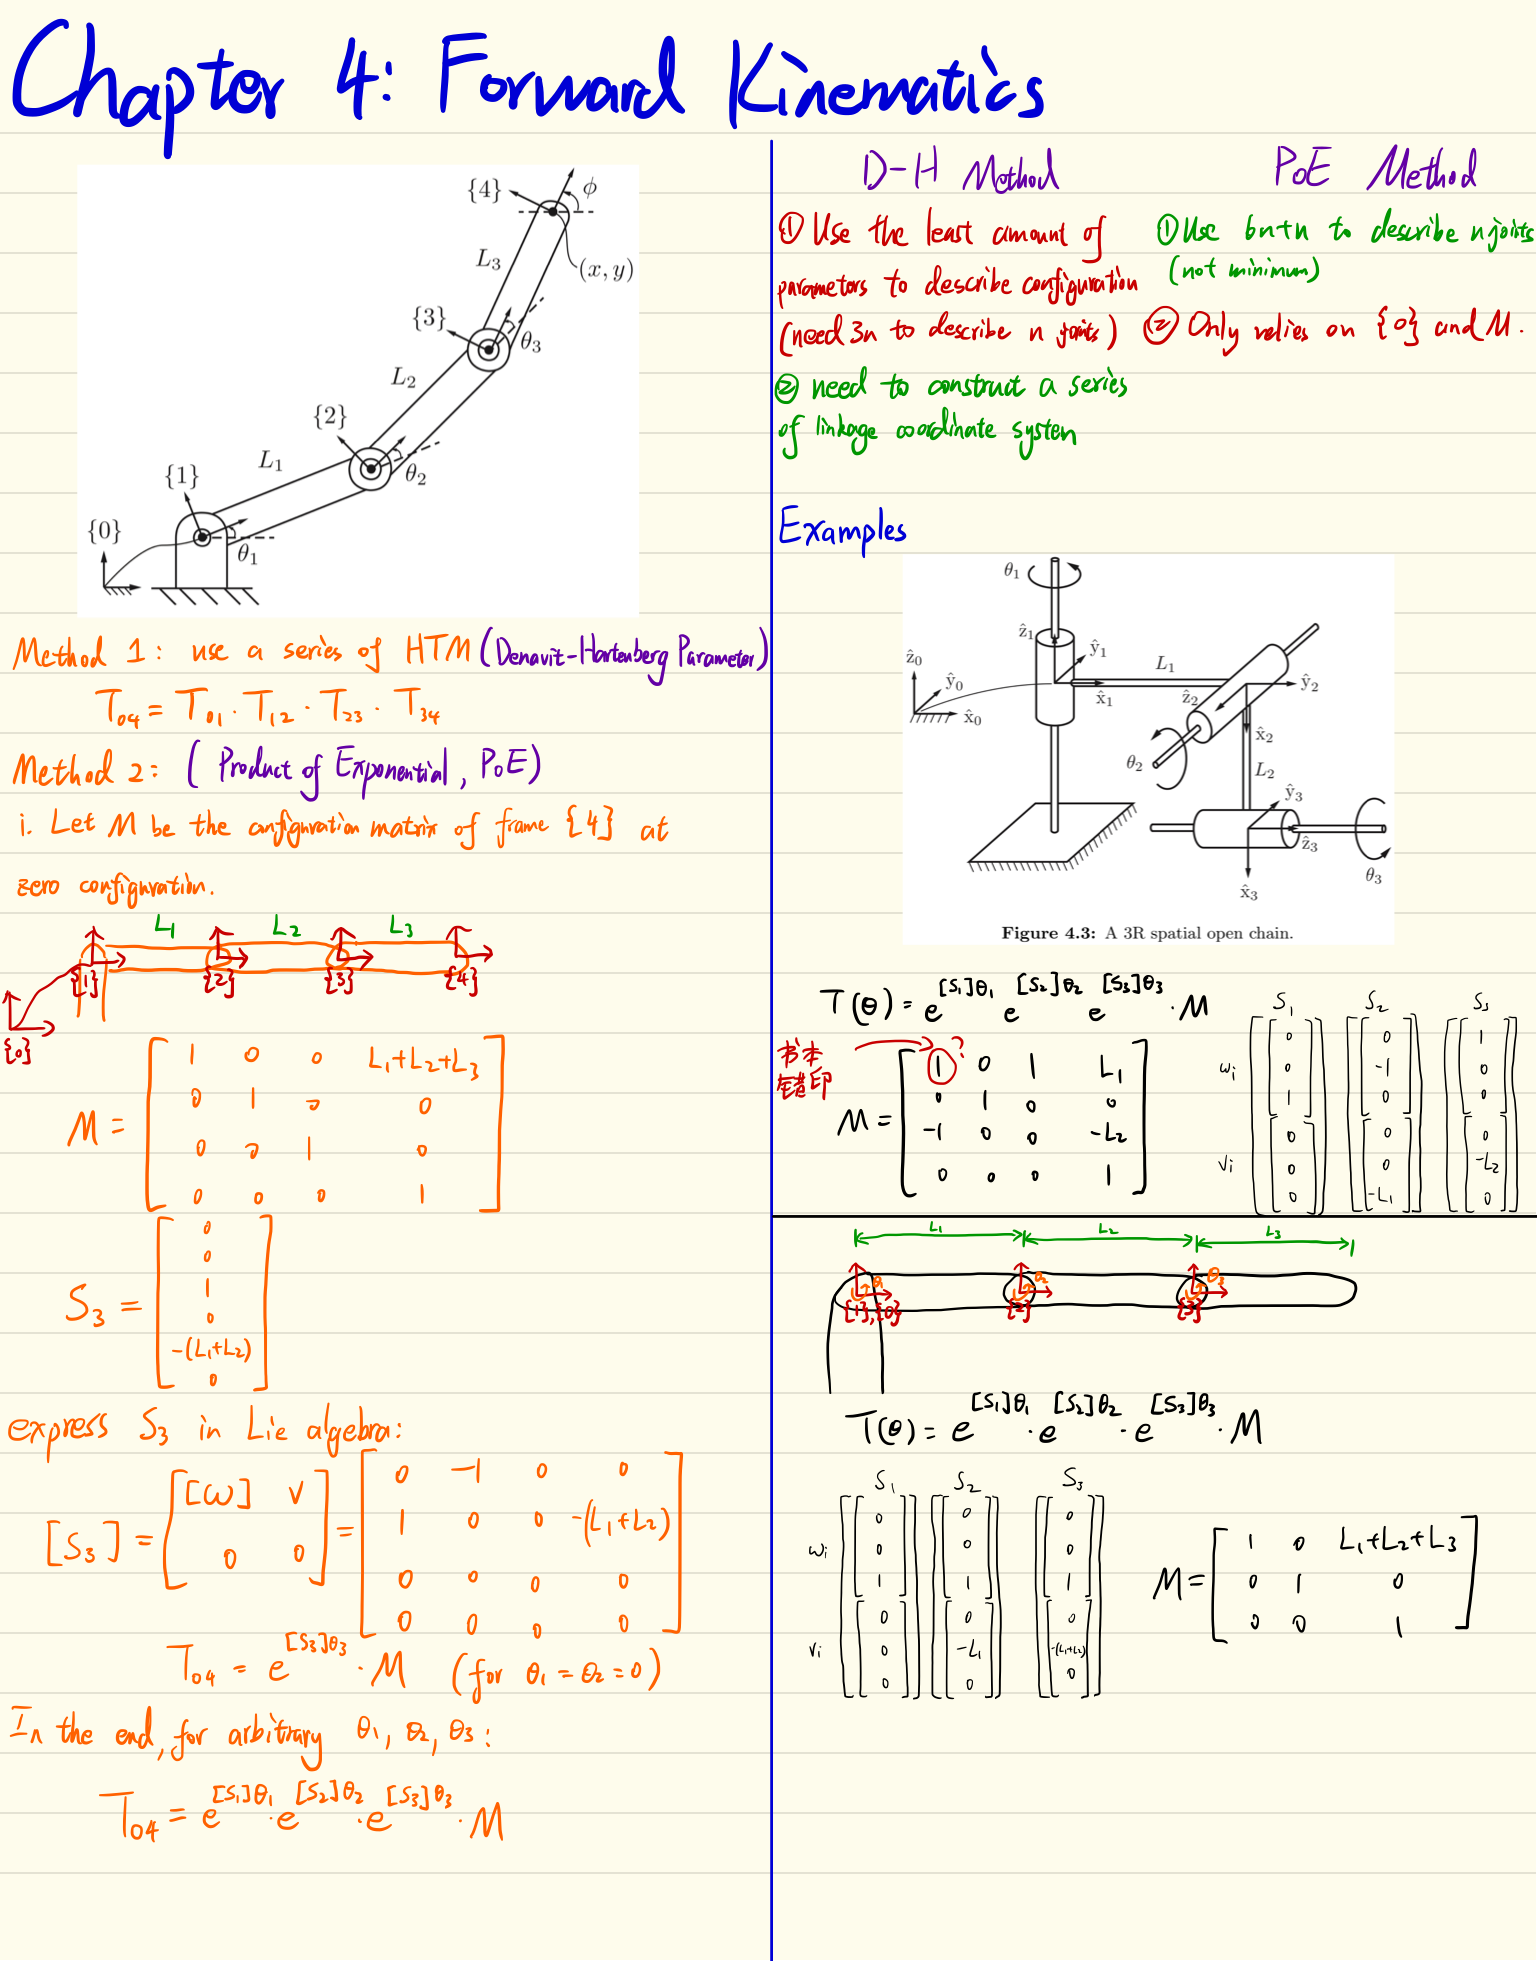 Chapter 4: Forward Kinematics
{4} ϕ
L₃
(x, y)
{3} θ₃
L₂
{2}
L₁ θ₂
{1}
{0} θ₁
Method 1: use a series of HTM (Denavit-Hartenberg Parameter)
T₀₄ = T₀₁ · T₁₂ · T₂₃ · T₃₄
Method 2: ( Product of Exponential, PoE)
i. Let M be the configuration matrix of frame {4} at
zero configuration.
L₁ L₂ L₃
{1} {2} {3} {4}
{0}
M = [ 1 0 0 L₁+L₂+L₃
0 1 0 0
0 0 1 0
0 0 0 1 ]
S₃ = [ 0
0
1
0
-(L₁+L₂)
0 ]
express S₃ in Lie algebra:
[S₃] = [ [ω] v
0 0 ] = [ 0 -1 0 0
1 0 0 -(L₁+L₂)
0 0 0 0
0 0 0 0 ]
T₀₄ = e^[S₃]θ₃ · M (for θ₁ = θ₂ = 0)
In the end, for arbitrary θ₁, θ₂, θ₃:
T₀₄ = e^[S₁]θ₁ · e^[S₂]θ₂ · e^[S₃]θ₃ · M
D-H Method
① Use the least amount of
parameters to describe configuration
(need 3n to describe n joints)
② need to construct a series
of linkage coordinate system
PoE Method
① Use 6n+n to describe n joints
(not minimum)
② Only relies on {0} and M.
Examples
θ₁
ẑ₁ ŷ₁
ẑ₀ ŷ₀ x̂₀
x̂₁ L₁
ẑ₂ ŷ₂
x̂₂
θ₂ L₂
ŷ₃
ẑ₃
x̂₃ θ₃
Figure 4.3: A 3R spatial open chain.
T(θ) = e^[S₁]θ₁ e^[S₂]θ₂ e^[S₃]θ₃ · M
书本
错印
?
M = [ 1 0 1 L₁
0 1 0 0
-1 0 0 -L₂
0 0 0 1 ]
S₁ S₂ S₃
0 0 1
ωᵢ 0 -1 0
1 0 0
0 0 0
vᵢ 0 0 -L₂
0 -L₁ 0
L₁ L₂ L₃
θ₁ θ₂ θ₃
{1},{0} {2} {3}
T(θ) = e^[S₁]θ₁ · e^[S₂]θ₂ · e^[S₃]θ₃ · M
S₁ S₂ S₃
0 0 0
ωᵢ 0 0 0
1 1 1
0 0 0
vᵢ 0 -L₁ -(L₁+L₂)
0 0 0
M = [ 1 0 L₁+L₂+L₃
0 1 0
0 0 1 ]